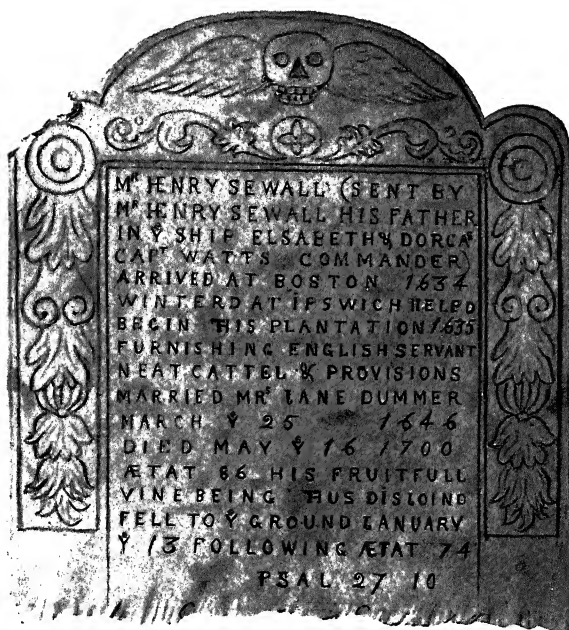 Mʳ HENRY SEWALL (SENT BY
Mʳ HENRY SEWALL HIS FATHER
IN Yᵉ SHIP ELSABETH & DORCAˢ
CAPᵗ WATTS COMMANDER)
ARRIVED AT BOSTON 1634
WINTERD AT IPSWICH HELPD
BEGIN THIS PLANTATION 1635
FURNISHING ENGLISH SERVANT
NEAT CATTEL & PROVISIONS
MARRIED MRˢ IANE DUMMER
MARCH Yᵉ 25 1646
DIED MAY Yᵉ 16 1700
ÆTAT 86 HIS FRUITFULL
VINE BEING THUS DISIOIND
FELL TO Yᵉ GROUND IANUARY
Yᵉ 13 FOLLOWING ÆTAT 74
PSAL 27 10